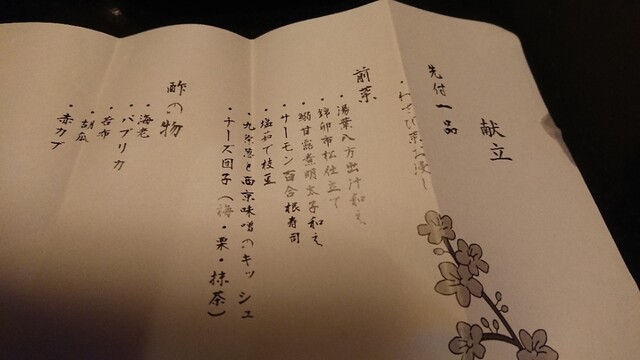 献立
先付一品
・わさび菜お浸し
前菜
・湯葉八方出汁和え
・錦卵市松仕立て
・鮹甘露煮明太子和え
・サーモン百合根寿司
・塩茹で枝豆
・九条葱と西京味噌のキッシュ
・チーズ団子(梅・栗・抹茶)
酢の物
・海老
・パプリカ
・若布
・胡瓜
・赤カブ